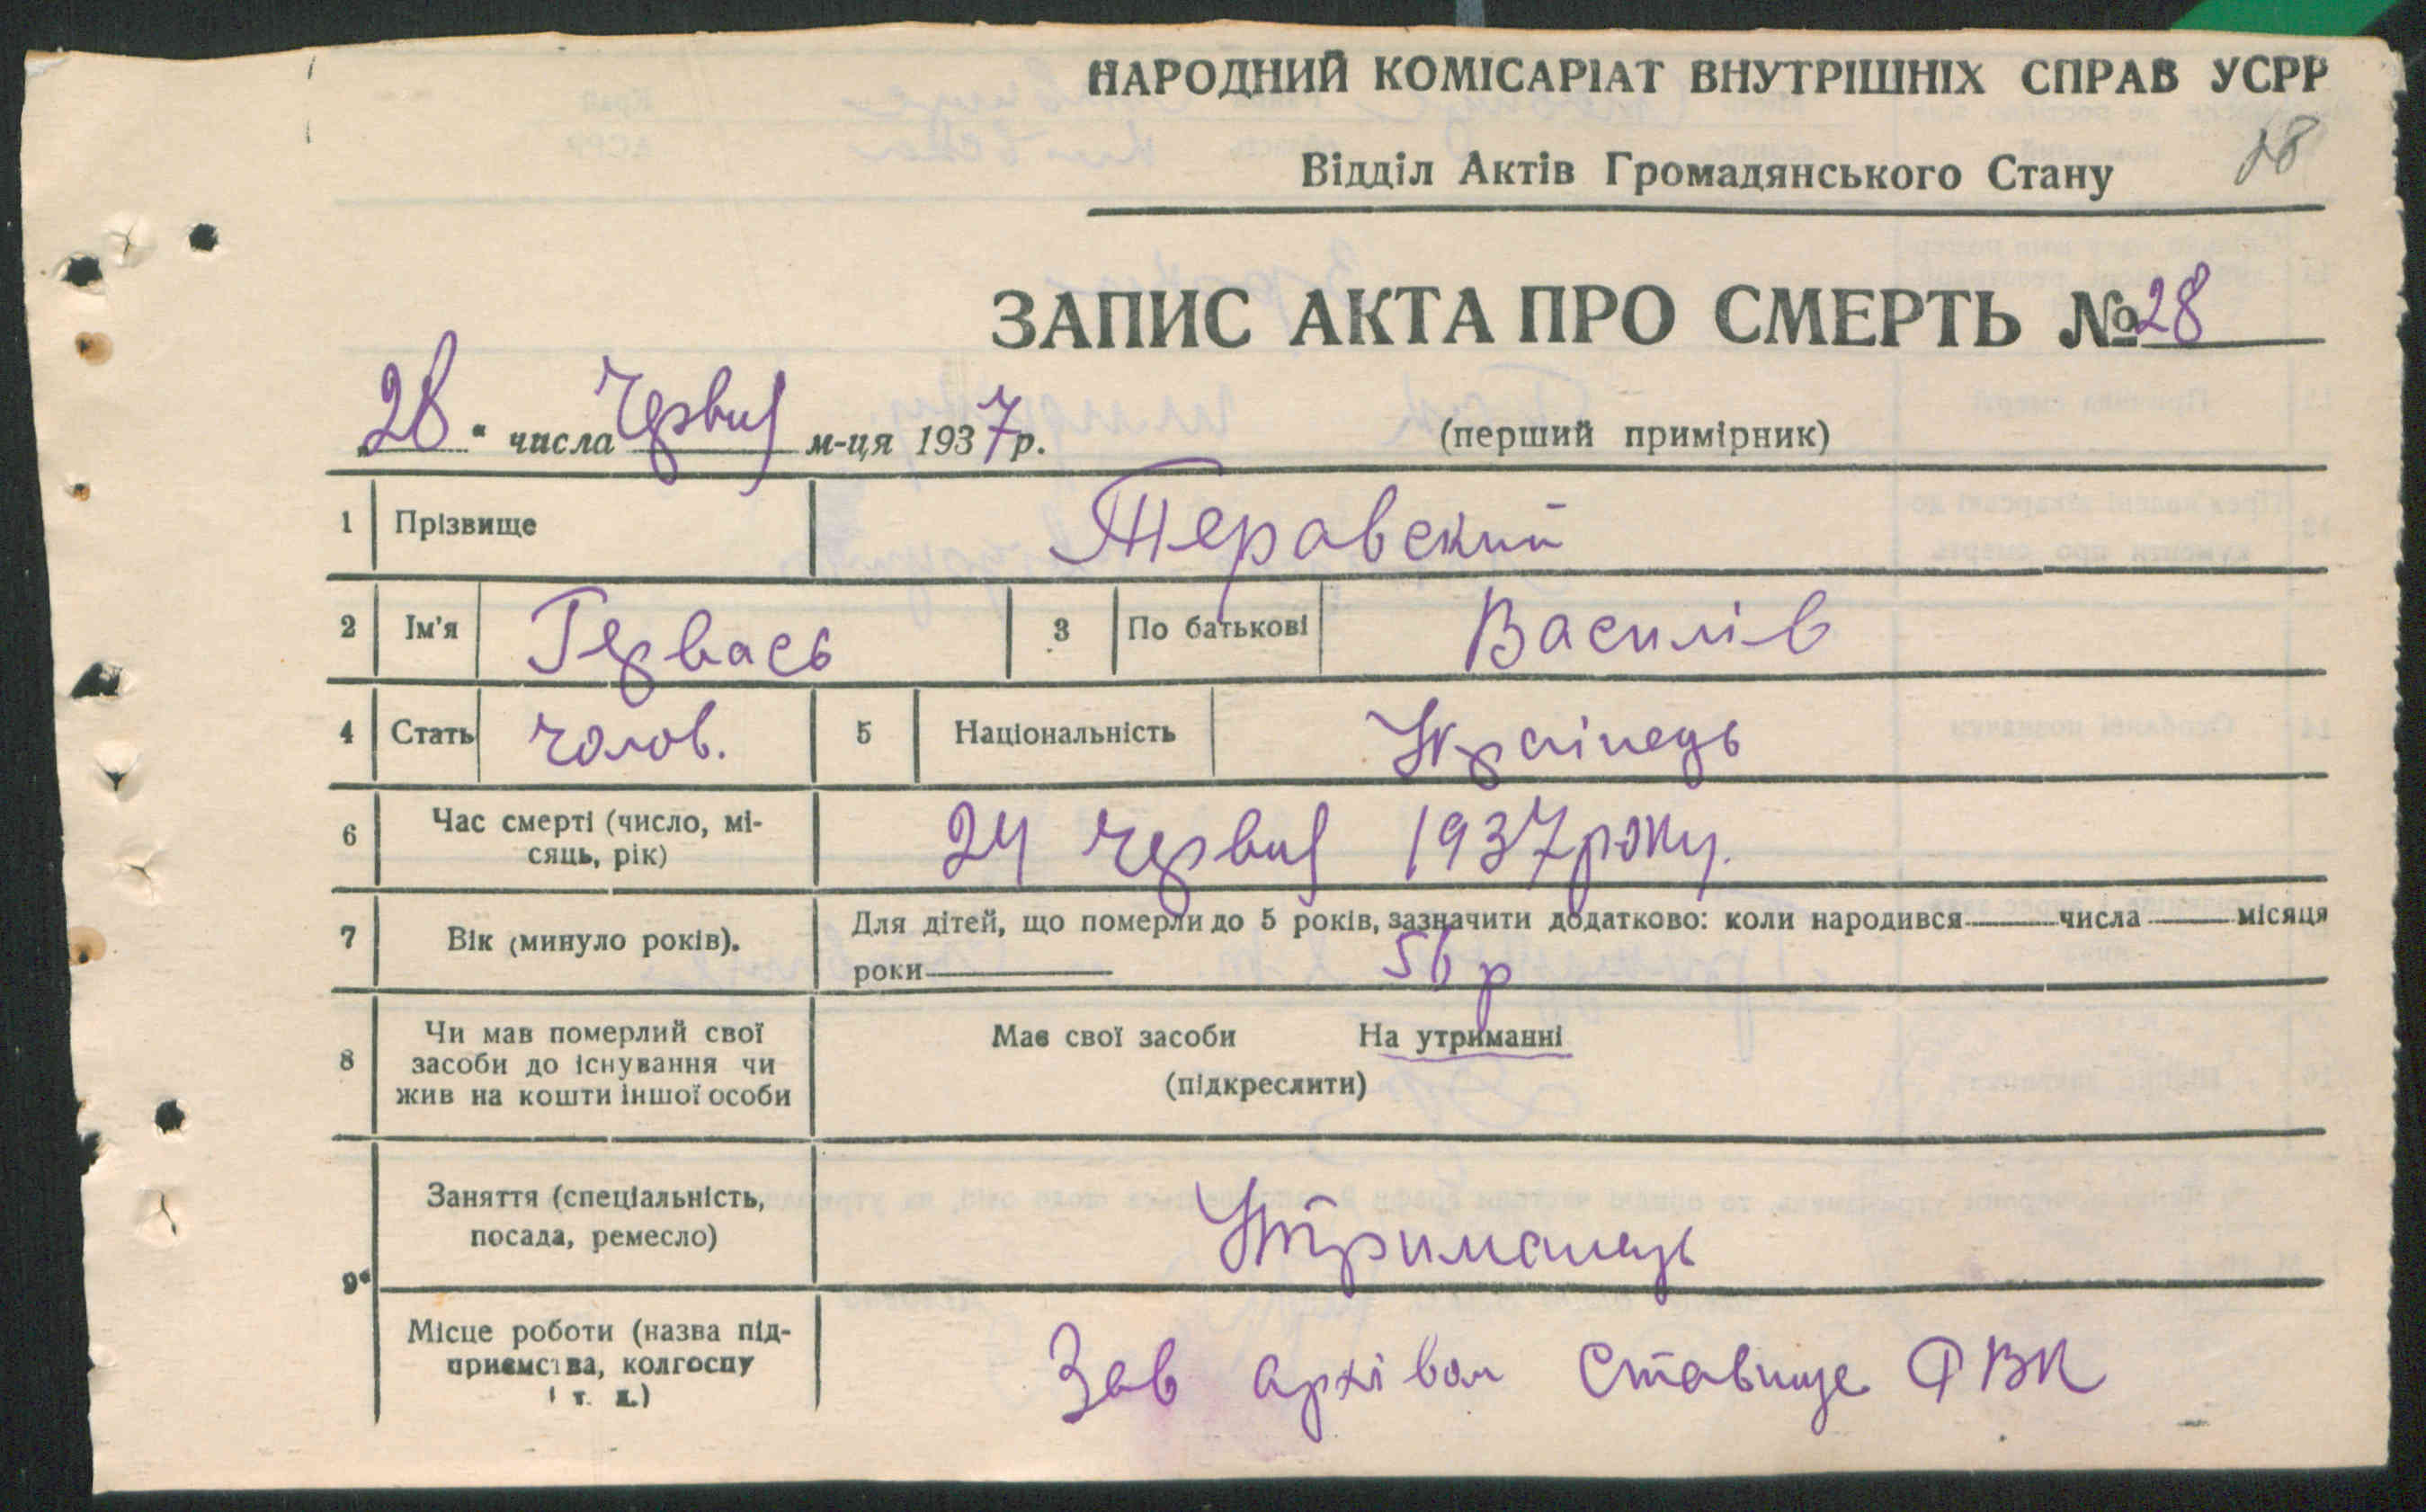 НАРОДНИЙ КОМІСАРІАТ ВНУТРІШНІХ СПРАВ УСРР
Відділ Актів Громадянського Стану
28
ЗАПИС АКТА ПРО СМЕРТЬ № 28
„28“ числа Червня м-ця 1937 р.
(перший примірник)
1 Прізвище Теравский
2 Ім'я Гервась 3 По батькові Василів
4 Стать чолов. 5 Національність Українець
6 Час смерті (число, мі-
сяць, рік)
24 червня 1937 року.
7 Вік (минуло років).
Для дітей, що померли до 5 років, зазначити додатково: коли народився числа місяця
роки 56 р
8 Чи мав померлий свої
засоби до існування чи
жив на кошти іншої особи
Має свої засоби На утриманні
(підкреслити)
9*
Заняття (спеціальність,
посада, ремесло)
Утриманець
Місце роботи (назва під-
приємства, колгоспу
і т. д.)
Зав архівом Ставище РВК